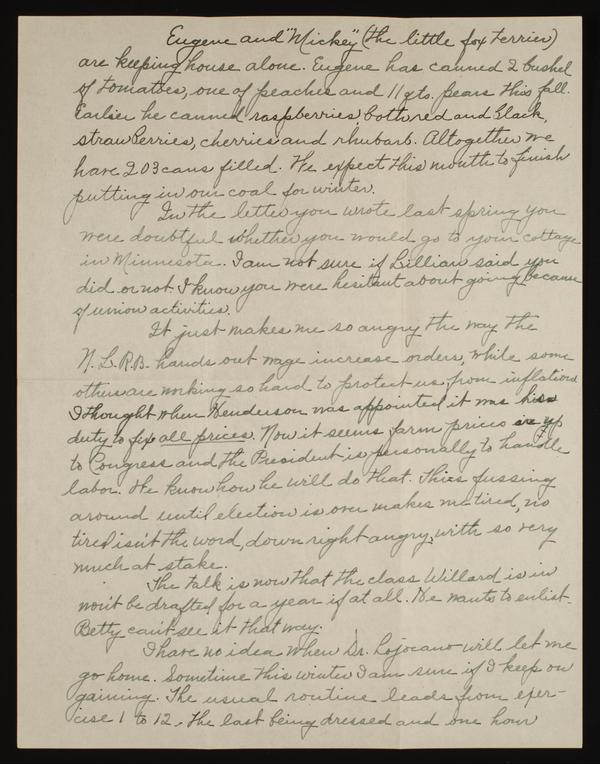 Eugene and "Mickey" (the little fox terrier)
are keeping house alone. Eugene has canned 2 bushel
of tomatoes, one of peaches and 11 qts. pears this fall.
Earlier he canned raspberries, both red and black,
strawberries, cherries and rhubarb. Altogether we
have 203 cans filled. We expect this month to finish
putting in our coal for winter.
In the letter you wrote last spring you
were doubtful whether you would go to your cottage
in Minnesota. I am not sure if Lillian said you
did or not. I know you were hesitant about going because
of union activities.
It just makes me so angry the way the
N.L.R.B. hands out wage increase orders, while some
others are working so hard to protect us from inflation.
I thought when Henderson was appointed it was his
duty to fix all prices. Now it seems farm prices are up
to Congress and the President is personally to handle
labor. We know how he will do that. This fussing
around until election is over makes me tired, no
tired isn't the word, down right angry, with so very
much at stake.
The talk is now that the class Willard is in
won't be drafted for a year if at all. He wants to enlist.
Betty can't see it that way.
I have no idea when Dr. Lojocano will let me
go home. Sometime this winter I am sure if I keep on
gaining. The usual routine leads from exer-
cise 1 to 12, the last being dressed and one hour